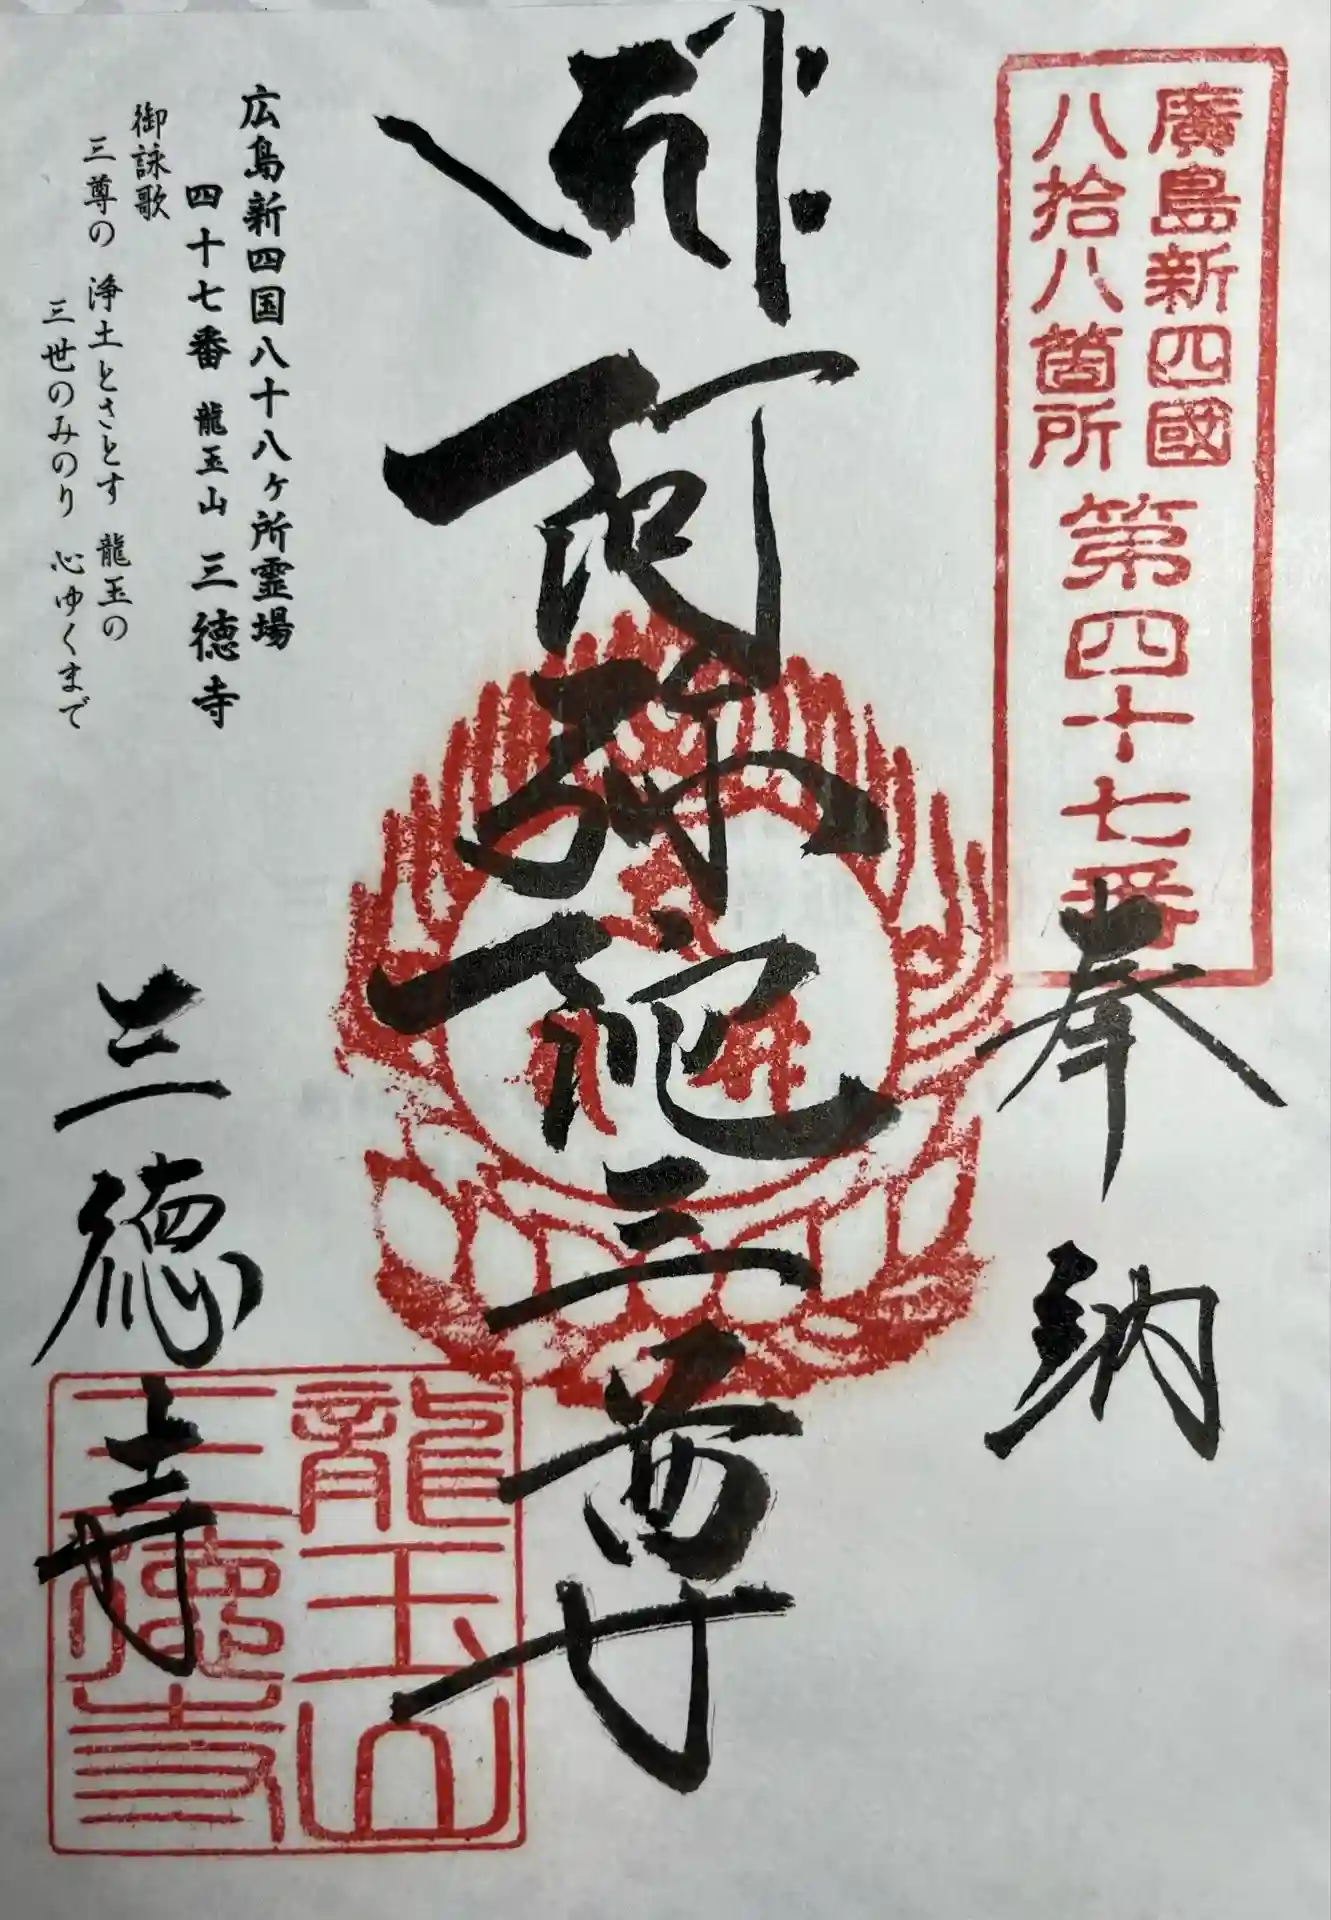 廣島新四國
八拾八箇所
第四十七番
奉納
阿弥陀三尊
広島新四国八十八ヶ所霊場
四十七番 龍玉山 三徳寺
御詠歌
三尊の 浄土とさとす 龍玉の
三世のみのり 心ゆくまで
三徳寺
龍玉山
三徳寺